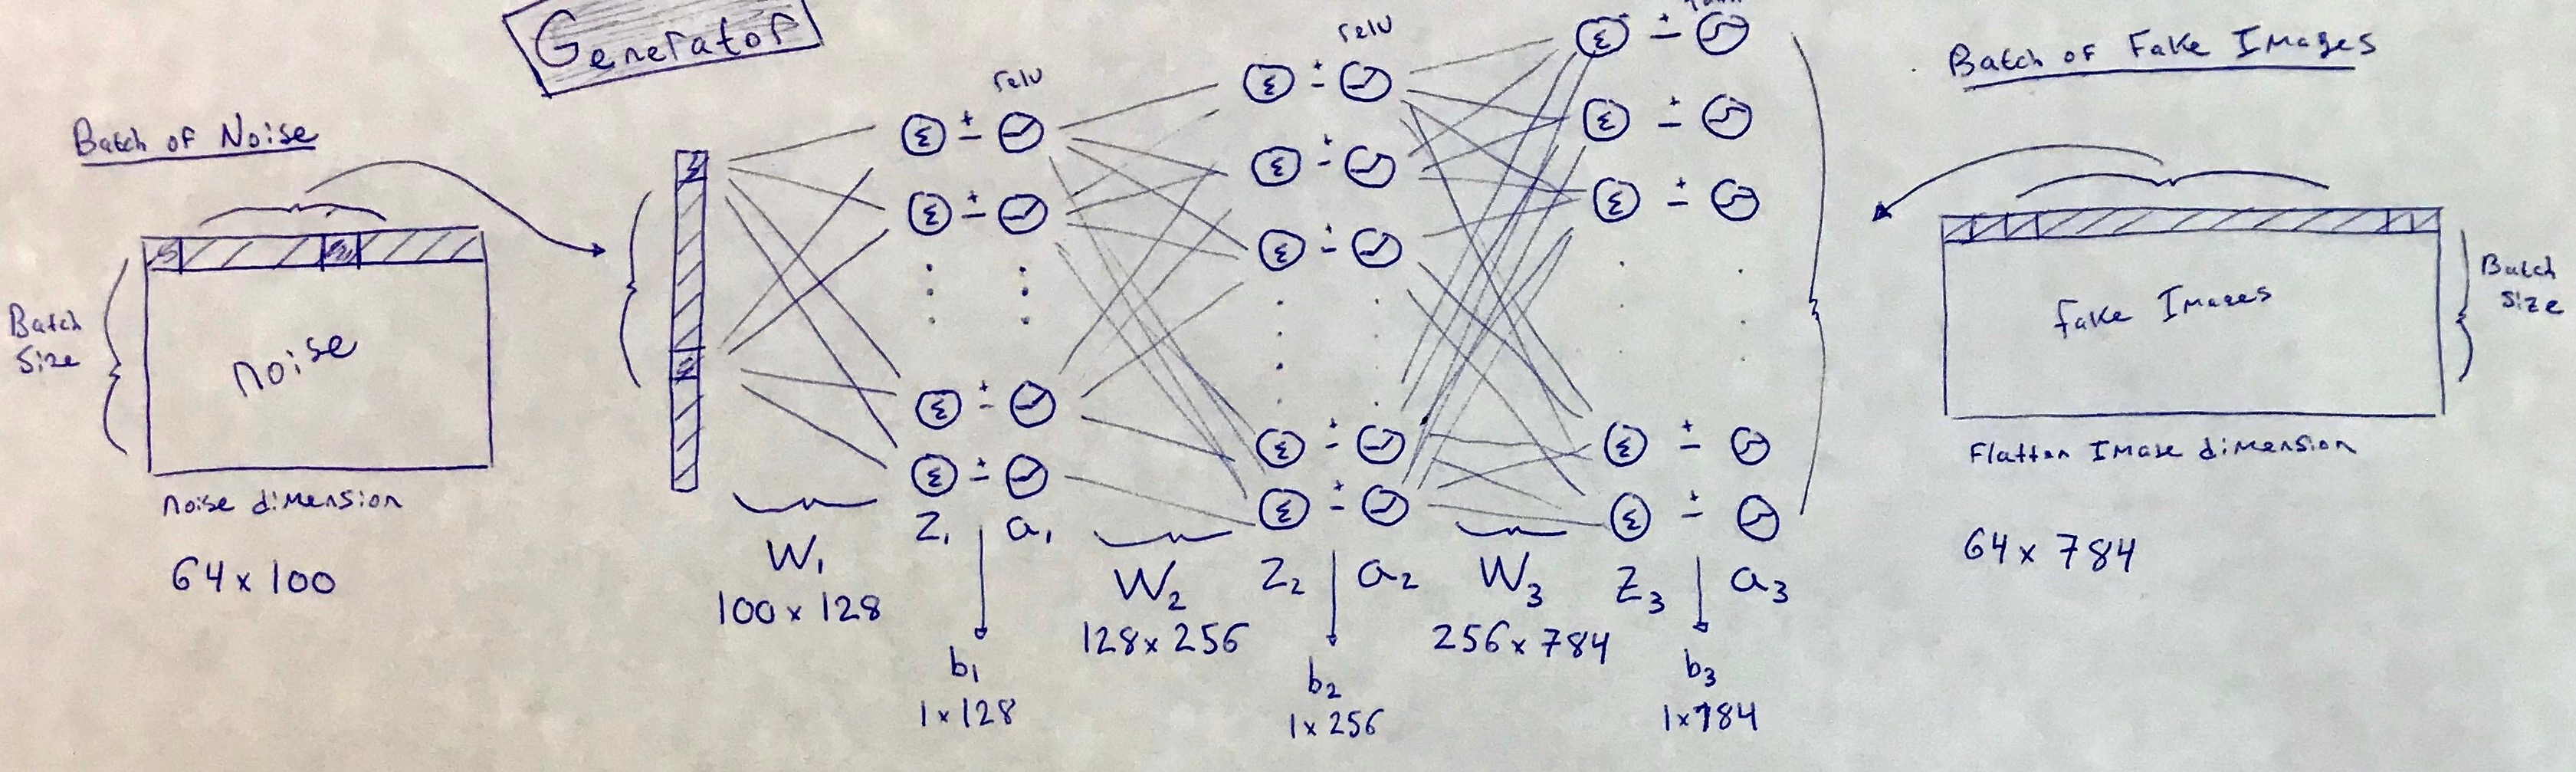 Generator
Batch of Noise
Batch Size
noise
noise dimension
64 x 100
W1
100 x 128
relu
Z1
a1
b1
1 x 128
W2
128 x 256
relu
Z2
a2
b2
1 x 256
W3
256 x 784
Z3
a3
b3
1 x 784
Batch of Fake Images
fake Images
Batch Size
Flatten Image dimension
64 x 784